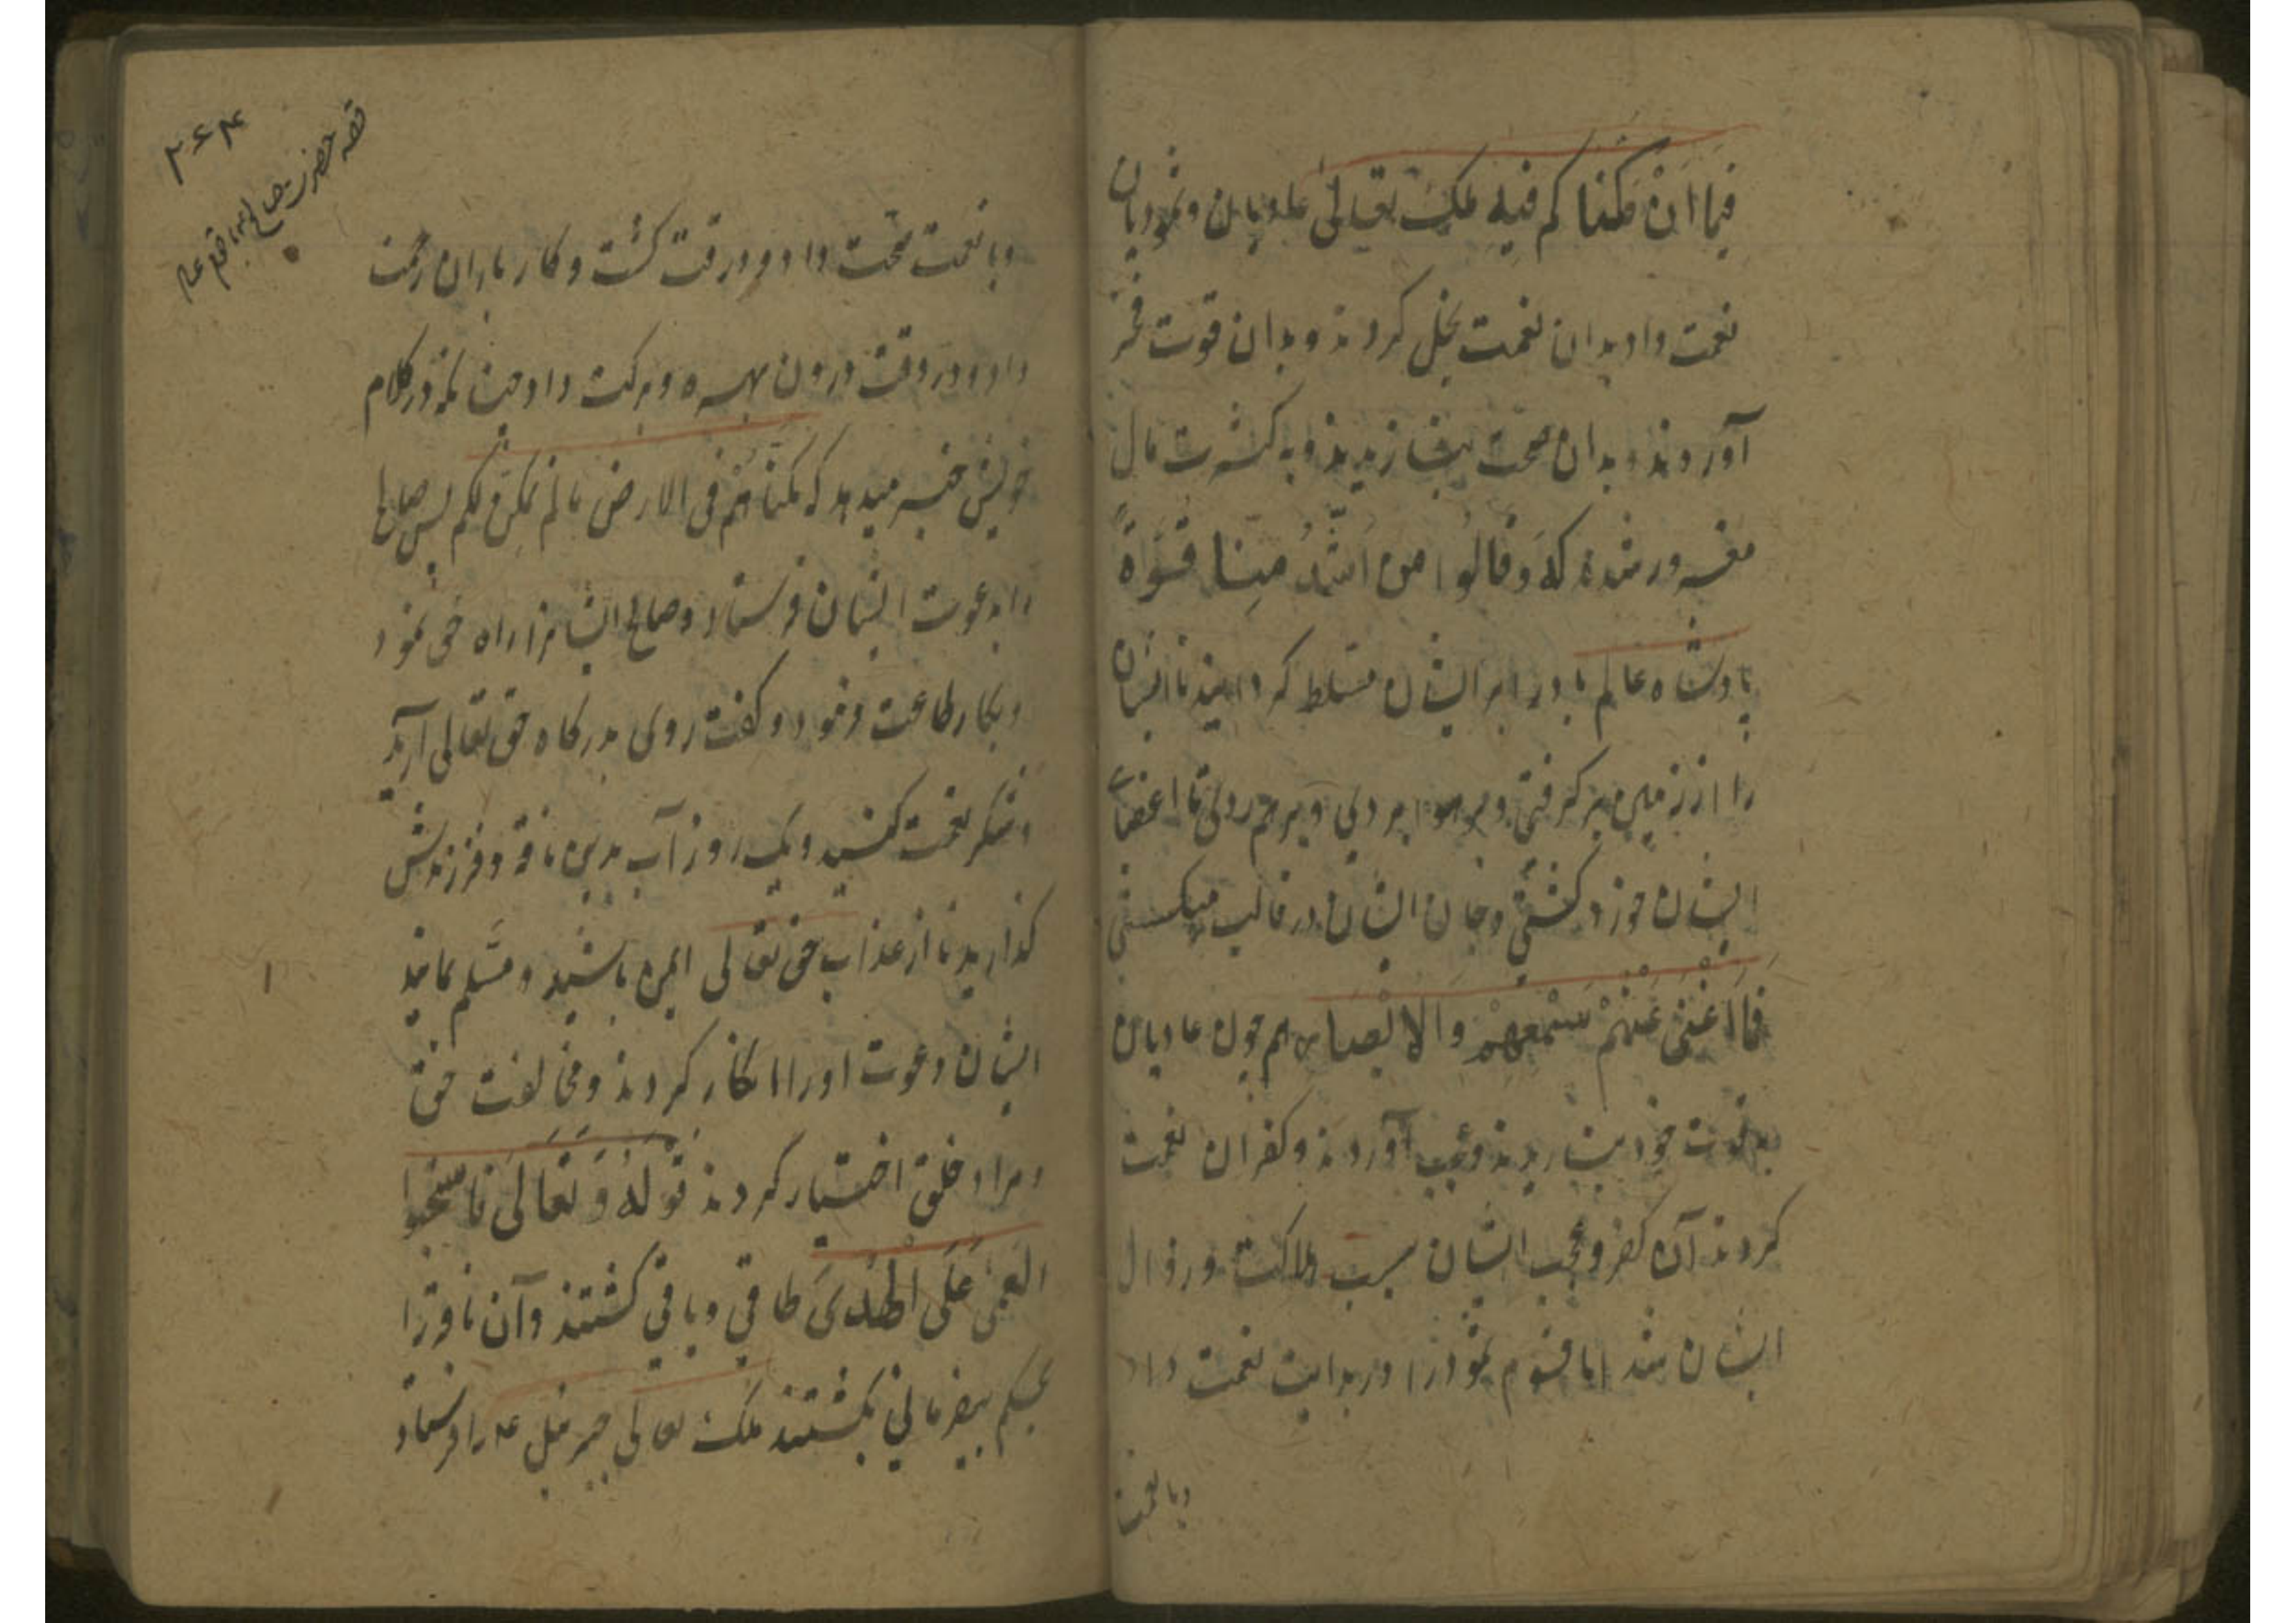 فیما ان مکنا کم فیه ملک تعالی عادیان و ثمودیان
نعمت داد بدان نعمت بخل کردند و بدان قوت فخر
آوردند و بدان صحت بنازیدند و به کثرت مال
مغرور شدند که وَقالُوا من اَشَدُّ مِنا قُوَّةً
پادشاه عالم باد را بر ایشان مسلط کردانید تا ایشان
را از زمین بر کرفتی و بر هوا بردی و بر هم زدی تا اعضای
ایشان خورد کشتی و جان ایشان در قالب میکسستی
فَمَا اَغْنٰی عَنْهُمْ سَمْعُهُمْ وَالا بْصار هم چون عادیان
به قوت خود بنازیدند و عجب آوردند و کفران نعمت
کردند آن کفر و عجب ایشان سبب هلاکت و زوال
ایشان شد اما قوم ثمود را در بدایت نعمت داد
وبا نعمت
۲۶۴
قصه حضرت صالح با قوم
وبا نعمت صحت داد و در وقت کشت و کار باران رحمت
داد و در وقت درون بهره و برکت داد چنانکه در کلام
خویش خبر میدهد که مکناهُمْ فی الارض ما لم نمکن لکم پس صالح
را بدعوت ایشان فرستاد و صالح ایشانرا راه حق نمود
و بکار طاعت فرمود و کفت روی بدرکاه حق تعالی آرید
و شکر نعمت کنید و یک روز آب بدین ناقه و فرزندش
کذارید تا از عذاب حق تعالی ایمن باشید و مسلم مانید
ایشان دعوت او را انکار کردند و مخالفت حق
و مراد خلق اختیار کردند قَوْلُهُ وَ تَعَالَی فاستحبوا
العَمٰی عَلَی الْهُدَی طاقی و باقی کشتند و آن ناقه را
بحکم بیفرمانی بکشتند ملک تعالی جبرئیل ع را فرستاد